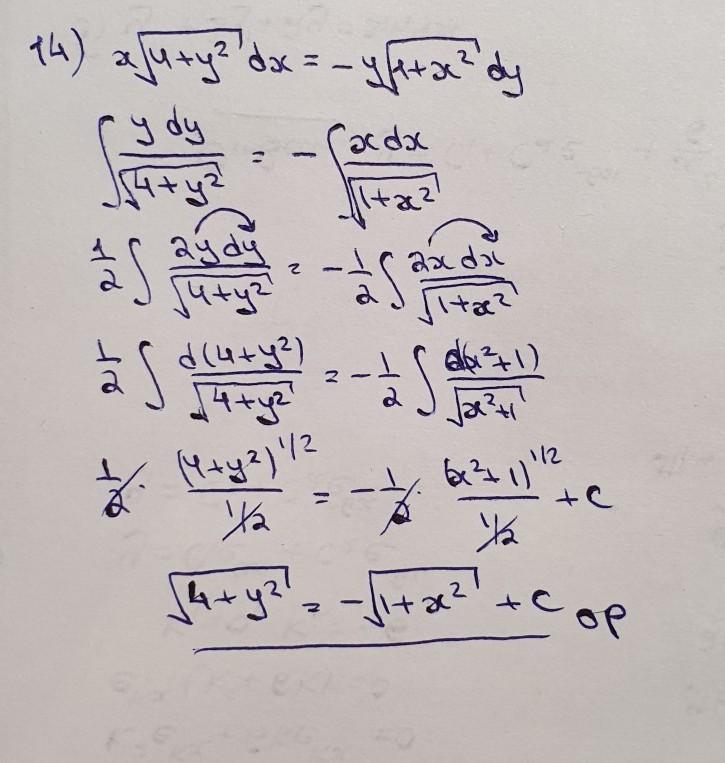 14) x√(4+y²) dx = -y√(1+x²) dy
∫ y dy / √(4+y²) = - ∫ x dx / √(1+x²)
1/2 ∫ 2y dy / √(4+y²) = -1/2 ∫ 2x dx / √(1+x²)
1/2 ∫ d(4+y²) / √(4+y²) = -1/2 ∫ d(x²+1) / √(x²+1)
1/2 · (4+y²)^1/2 / 1/2 = -1/2 · (x²+1)^1/2 / 1/2 + C
√(4+y²) = -√(1+x²) + C OP